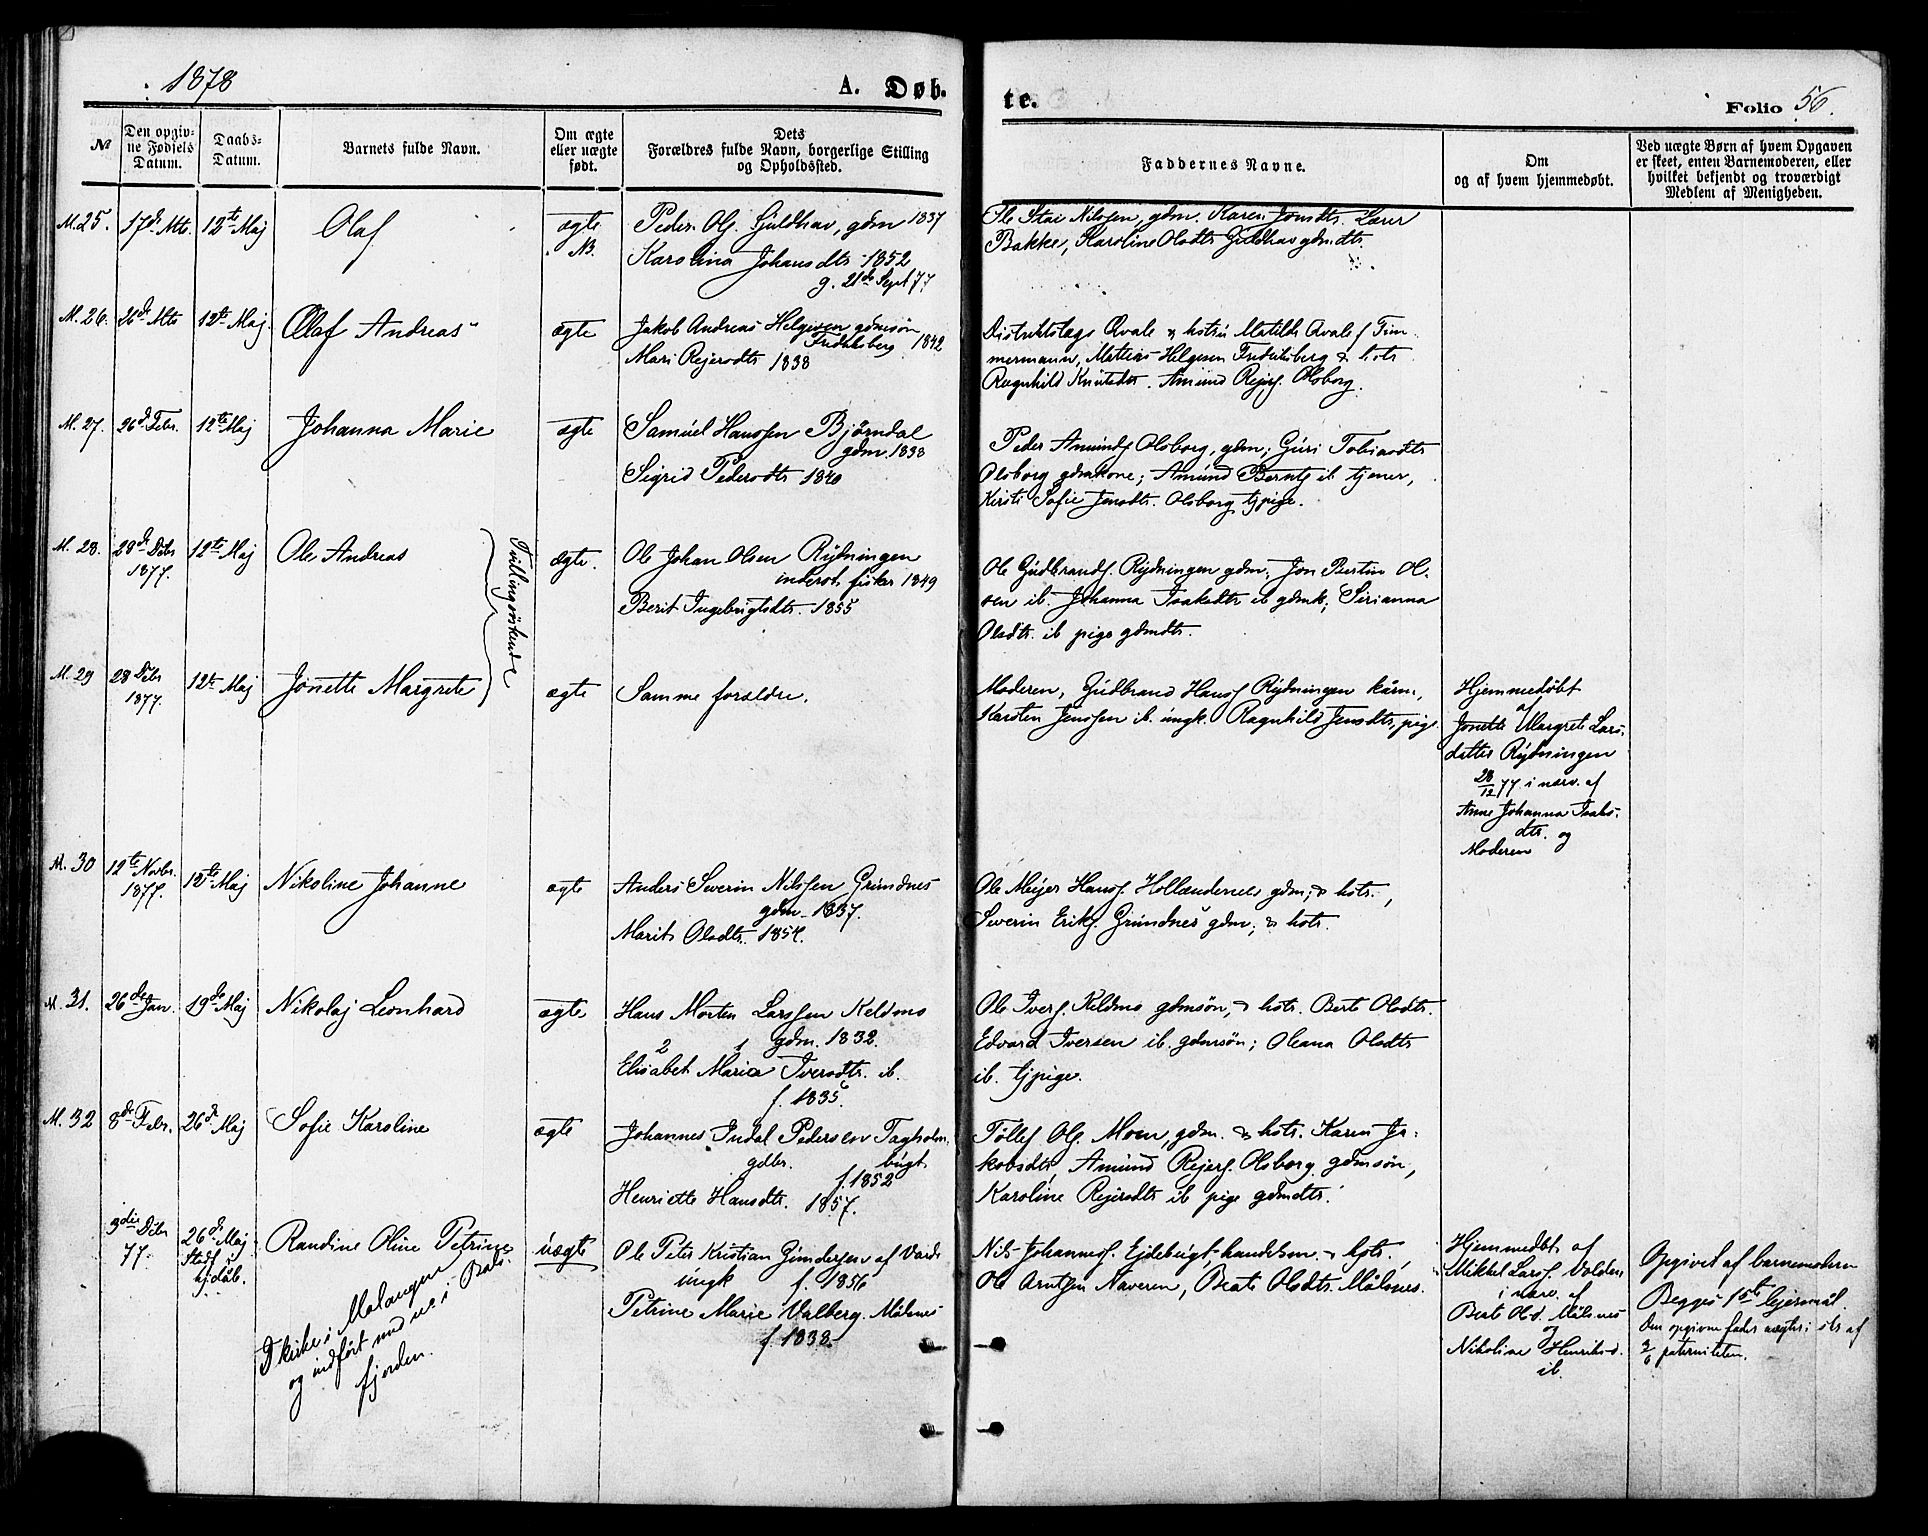 1878
A. Døb-
te.
Folio 56.
№
Den opgiv-
ne Fødsels
Datum.
Daabs-
Datum.
Barnets fulde Navn.
Om ægte
eller uægte
født.
Dets
Forældres fulde Navn, borgerlige Stilling
og Opholdssted.
Faddernes Navne.
Om
og af hvem hjemmedøbt.
Ved uægte Børn af hvem Opgaven
er skeet, enten Barnemoderen, eller
hvilket bekjendt og troværdigt
Medlem af Menigheden.
M. 25. 17de Mts. 12te Maj
Olaf
ægte
NB.
Peder Olss. Guldhav, gdm 1837
Karolina Johansdtr 1852
g. 21de Sept 77
Nilssen, gdm. Karen Jonsdtr.
Bakke, Karoline Olsdtr Guldhav gdmdtr.
M. 26. 26de Mts 12te Maj.
Olaf Andreas
ægte
Jakob Andreas Helgesen gdmsøn
Fredriksberg 1842
Mari Rejersdtr 1838
Distriktslæge Qvale & hstru Matilde Qvale f Tim-
mermann, Mathias Helgesen Fredriksberg & hstr
Ragnhild Knutsdtr. Amund Rejers. Olsborg.
M. 27. 26de Febr. 12te Maj
Johanna Marie
ægte
Samuel Hanssen Bjørndal
gdm. 1838
Sigrid Pedersdtr 1840
Peder Amunds Olsborg, gdm; Guri Tobiasdtr
Olsborg gdmkone; Amund Bernts ib. tjener,
Kirsti Sofie Jensdtr. Olsborg tjpige.
M. 28. 28de Dcbr
1877. 12te Maj
Ole Andreas
Tvillingsøskende
ægte.
Ole Johan Olsen Rydningen
inderst fisker 1849
Berit Ingebrigtsdtr. 1855
Ole Gudbrands. Rydningen gdm; Jon Bertin Ol-
sen ib. Johanna Isaksdtr ib gdmk; Sirianna
Olsdtr. ib pige gdmdtr.
M. 29 28 Dcbr
1877. 12te Maj
Jonette Margrete
ægte
Samme forældre.
Moderen, Gudbrand Hanss Rydningen kårm,
Karsten Jenssen ib. ungk. Ragnhild Jensdtr, pige
Hjemmedøbt
af
Jonette Margrete Lars-
datter Rydningen
28/12 77 i nærv. af
Anne Johanna Isaks-
dtr. og
Moderen
M. 30 12te Novbr.
1877. 12te Maj
Nikoline Johanne
ægte
Anders Severin Nilssen Grundnes
gdm. 1837.
Marit Olsdtr. 1854.
Ole Mejer Hanss. Hollændernes gdm; & hstr.,
Severin Eriks. Grundnes gdm; & hstr.
M. 31. 26de Jan. 19de Maj
Nikolaj Leonhard
ægte
Hans Morten Larssen Keldmo
gdm. 1832.
2 1
Elisabet Maria Iversdtr. ib.
f. 1835.
Ole Ivers. Keldmo gdmsøn, & hstr. Berte Olsdtr.
Edvard Iversen ib. gdmsøn; Oleana Olsdtr
ib. tjpige.
M. 32 8de Febr. 26de Maj
Sofie Karoline
ægte
Johannes Indal Pedersen Tagholm-
gdbr. bugt
f. 1852
Henriette Hansdtr. 1857.
Tollef Ols. Moen, gdm. & hstr. Karen Ja-
kobsdtr, Amund Rejers. Olsborg gdmsøn,
Karoline Rejersdtr ib pige gdmdtr.
3die Dcbr
77. 26de Maj
Stadf.
hj.dåb.
Randine Oline Petrine
D kirke i Malangen
og indført med no. i Bals-
fjorden.
uægte
Ole Peter Kristian Gundersen af
ungk f. 1856
Petrine Marie Valberg. Målsnes
f. 1838.
Nils Johanness. Ejdebugt, handelsm. & hstr.
Ole Arntsen Naveren, Berte Olsdtr. Målsnes.
Hjemmedbt. af
Mikkel Larss. Volden
i nærv. af
Berte Ols.d. Målsnes
og
Nikoline Henriks.d.
ib.
Opgivet af barnemoderen
Begges 1ste lejermål.
Den opgivne fader nægter i af
paterniteten.